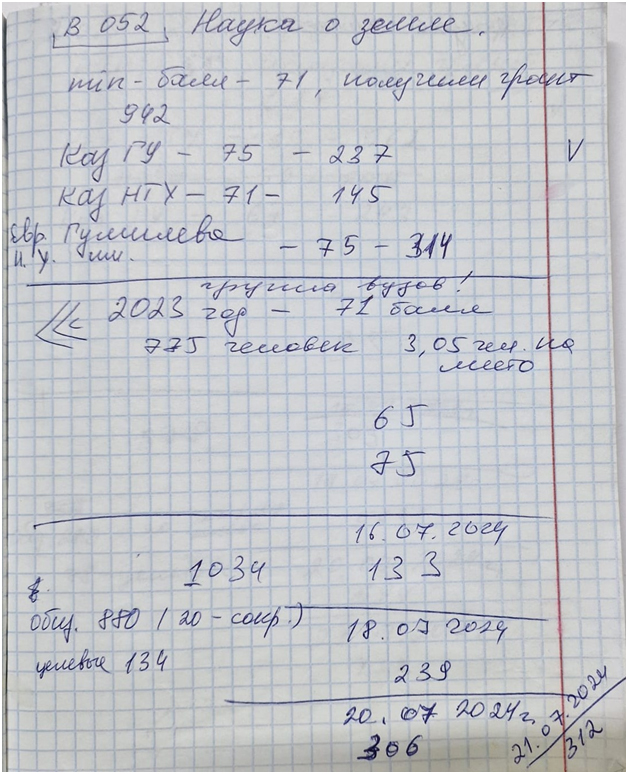 В 052. Наука о земле.
min - балл - 71, получили грант
942
Каз ГУ - 75 - 237
V
Каз НТУ - 71 - 145
Евр. Гумилева - 75 - 314
н. у. им.
группа вузов!
2023 год - 71 балл
775 человек 3,05 чел. на
место
65
75
16.07.2024
1034 133
общ. 880 / 20 - сокр.)
18.07 2024
целевые 134
239
20.07 2024г.
306
21.07.2024
312